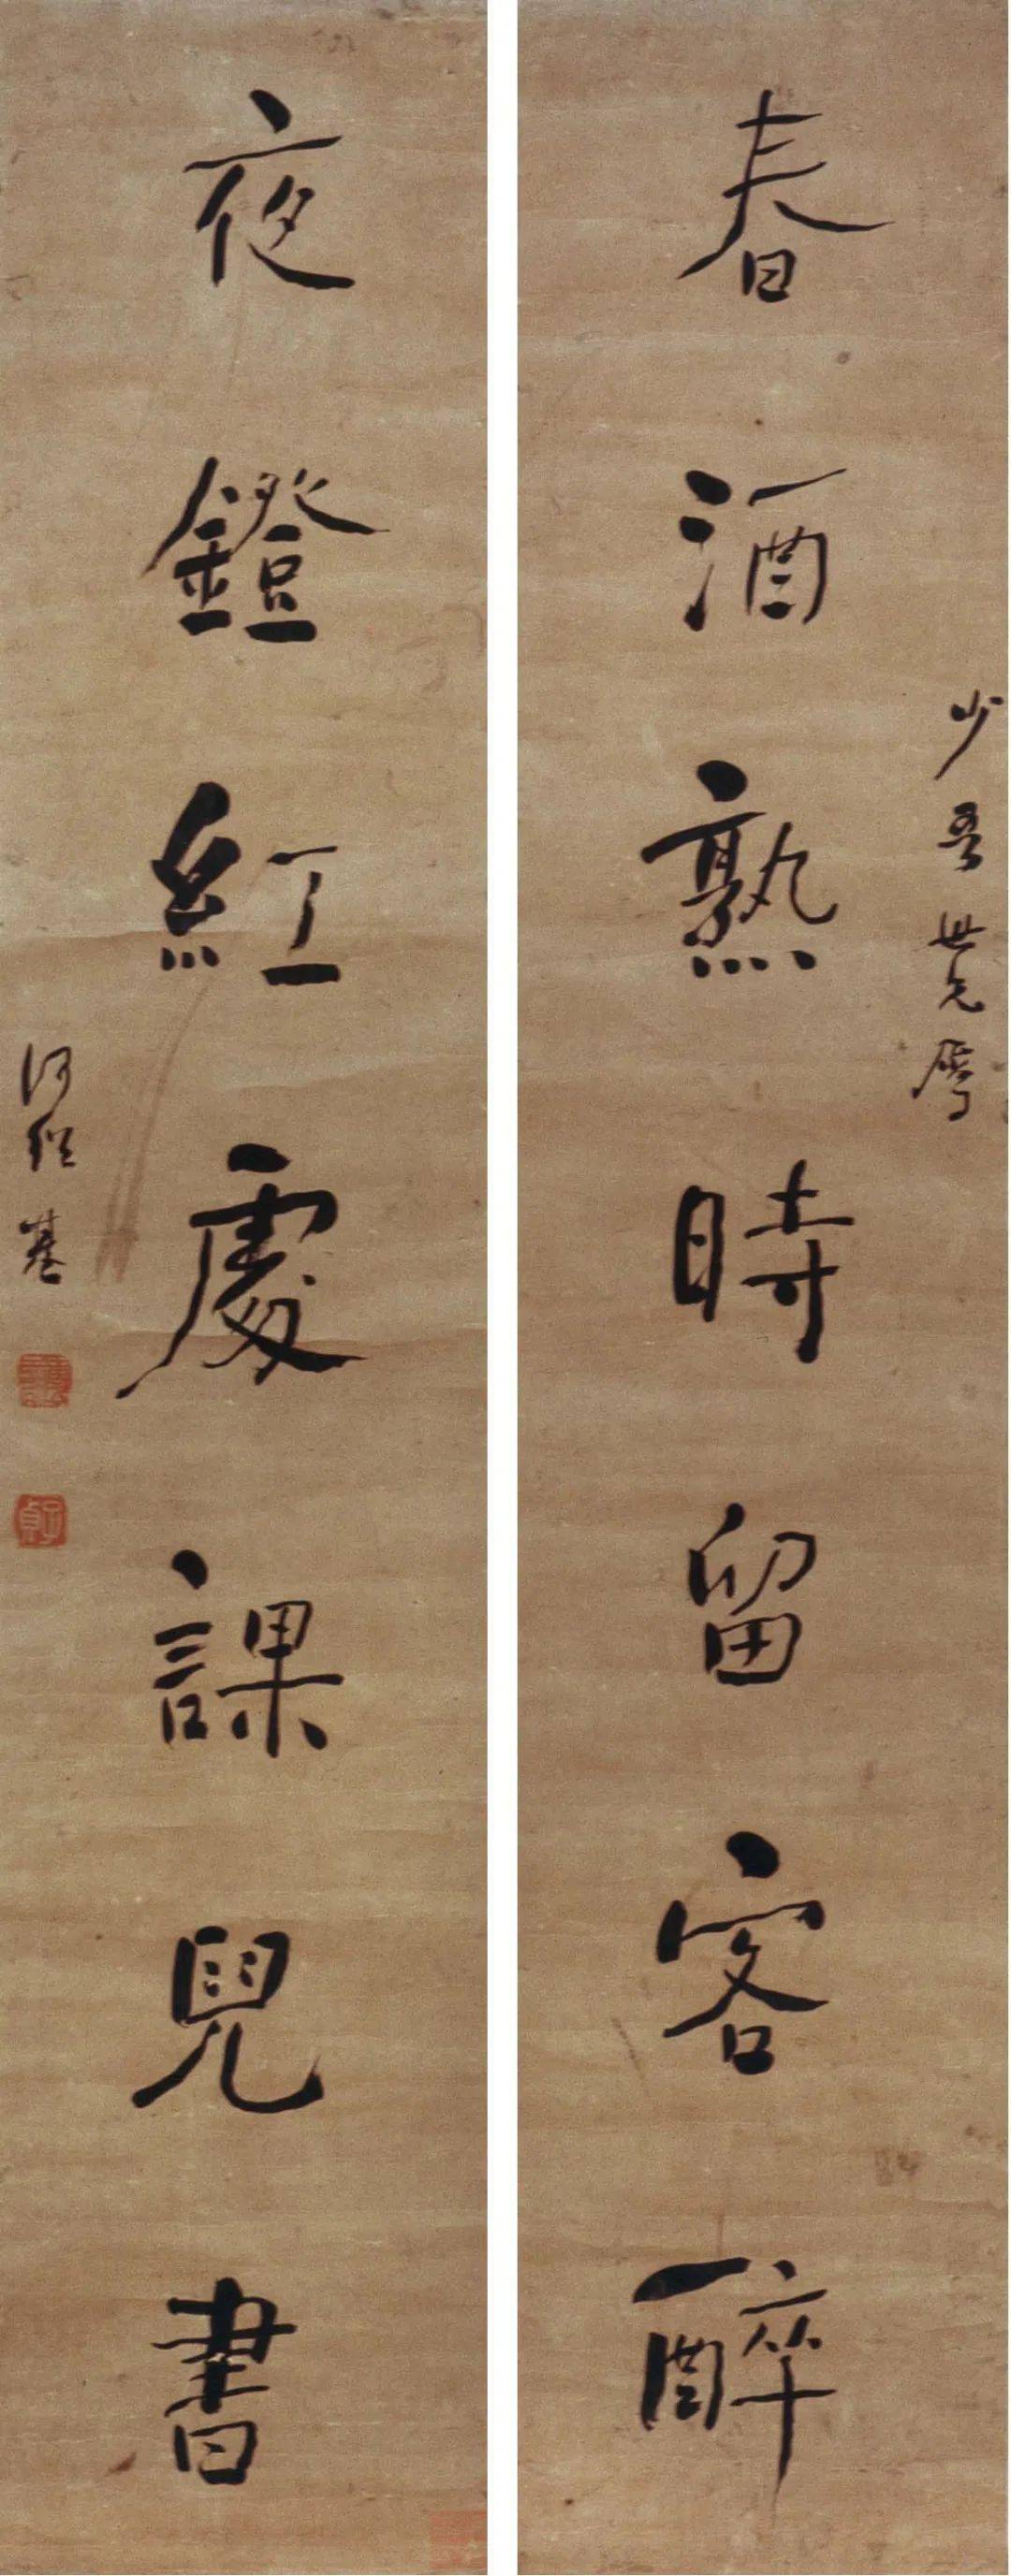 少吾世兄属
春酒熟時留客醉
夜鐙紅處課兒書
何紹基
子貞